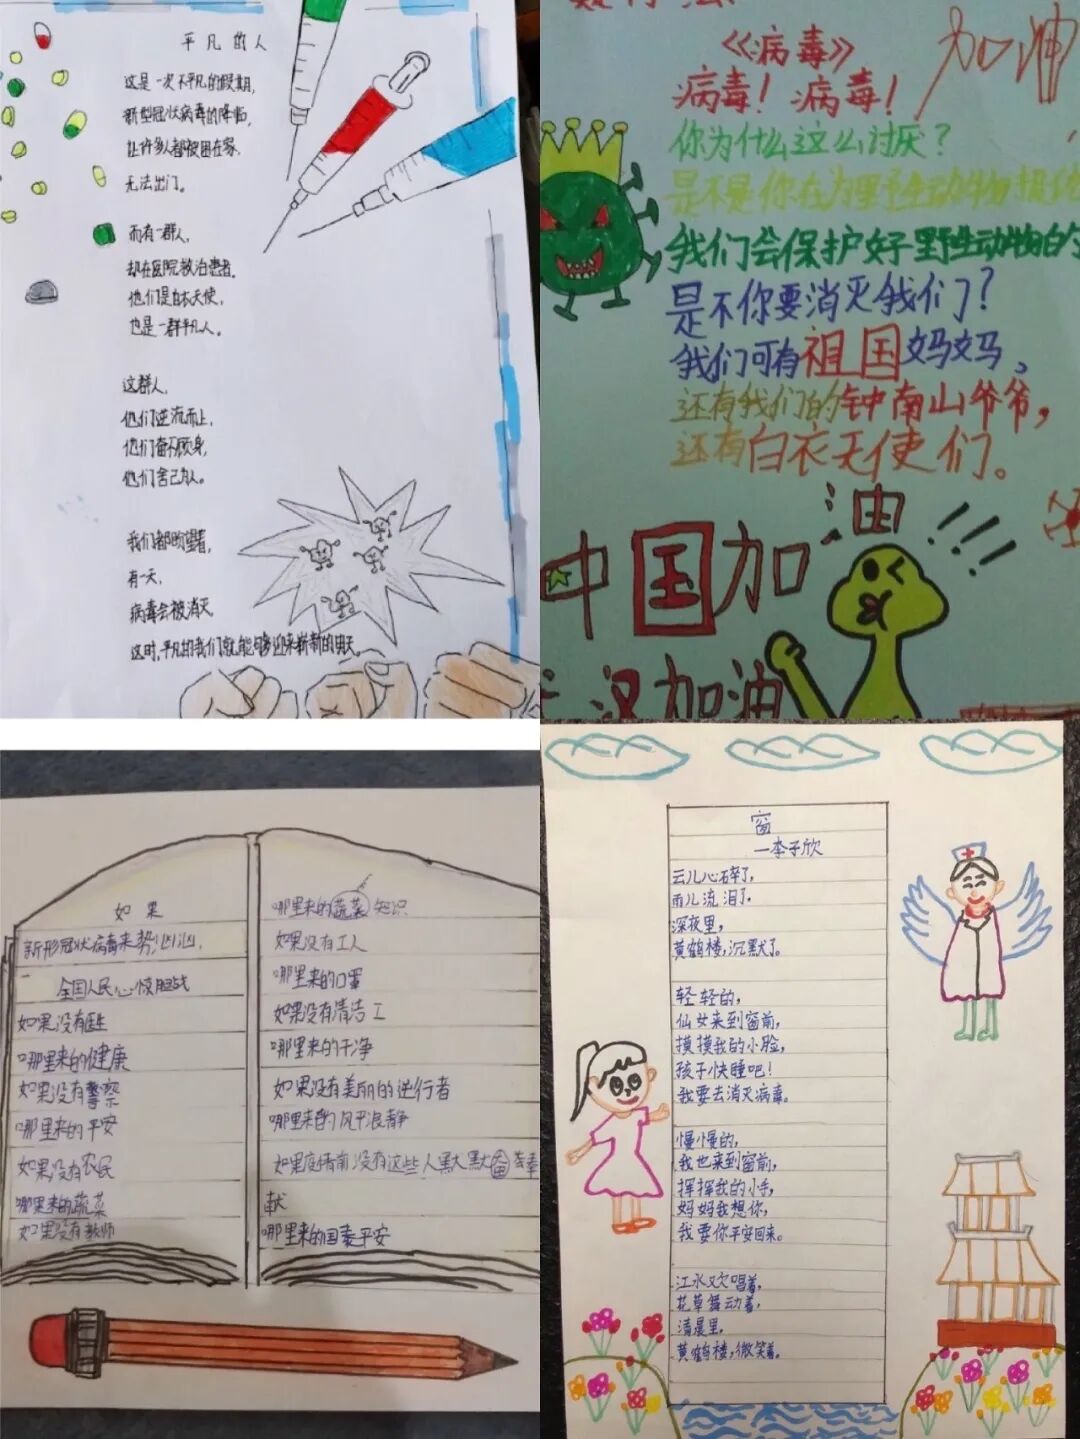 平凡的人
这是一次不平凡的假期,
新型冠状病毒的降临,
让许多人都被困在家,
无法出门。
而有一群人,
却在医院救治患者,
他们是白衣天使,
也是一群平凡人。
这群人,
他们逆流而上,
他们奋不顾身,
他们舍己为人。
我们都盼望着,
有一天,
病毒会被消灭,
这时,平凡的我们就能够迎来崭新的明天。
加油
《病毒》
病毒!病毒!
你为什么这么讨厌?
是不是你在为野生动物
我们会保护好野生动物的
是不你要消灭我们?
我们可有祖国妈妈、
还有我们的钟南山爷爷,
还有白衣天使们。
中国加油!!!
汉加油
如果
新形冠状病毒来势汹汹,
全国人民心惊胆战
如果没有医生
哪里来的健康
如果没有警察
哪里来的平安
如果没有农民
哪里来的蔬菜
如果没有教师
哪里来的蔬菜知识
如果没有工人
哪里来的口罩
如果没有清洁工
哪里来的干净
如果没有美丽的逆行者
哪里来的风平浪静
如果疫情前没有这些人默默
献
哪里来的国泰平安
窗
—李子欣
云儿心碎了,
雨儿流泪了.
深夜里,
黄鹤楼,沉默了。
轻轻的,
仙女来到窗前,
摸摸我的小脸,
孩子快睡吧!
我要去消灭病毒。
慢慢的,
我也来到窗前,
挥挥我的小手,
妈妈我想你,
我要你平安回来。
江水欢唱着,
花草舞动着,
清晨里,
黄鹤楼,微笑着。